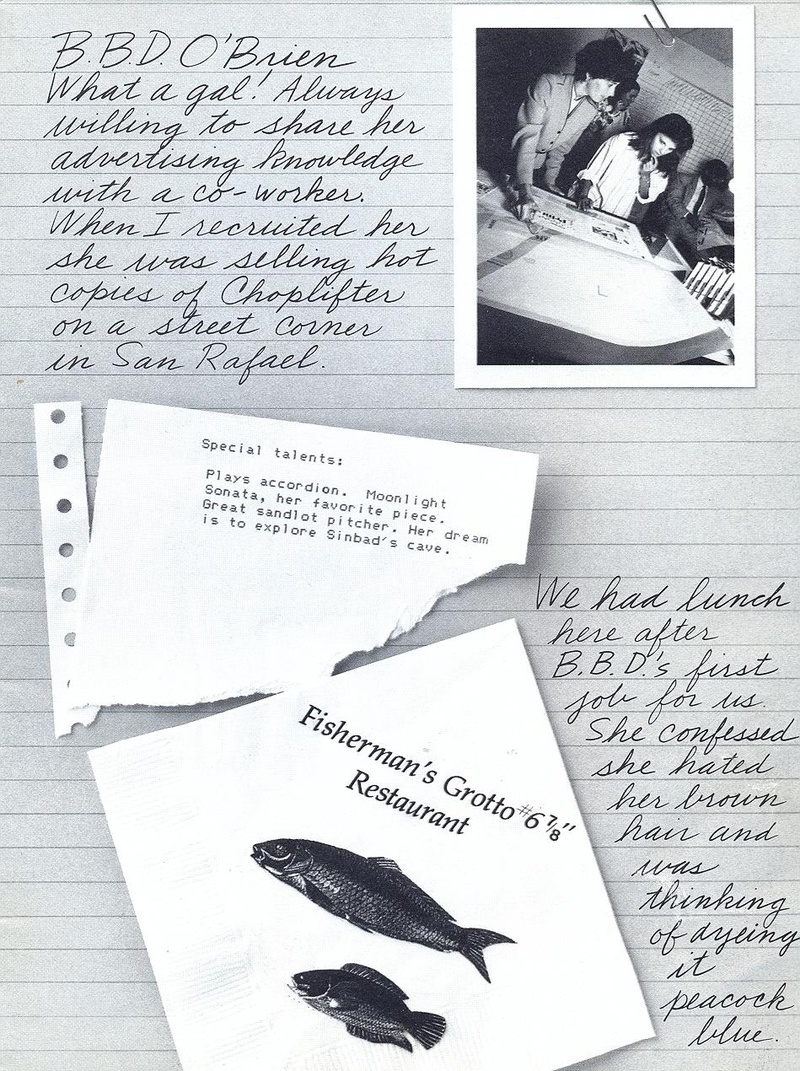 B.B.D. O'Brien
What a gal! Always
willing to share her
advertising knowledge
with a co-worker.
When I recruited her
she was selling hot
copies of Choplifter
on a street corner
in San Rafael.
Special talents:
Plays accordion. Moonlight
Sonata, her favorite piece.
Great sandlot pitcher. Her dream
is to explore Sinbad's cave.
Fisherman's Grotto #6 7/8"
Restaurant
We had lunch
here after
B.B.D.'s first
job for us.
She confessed
she hated
her brown
hair and
was
thinking
of dyeing
it
peacock
blue.